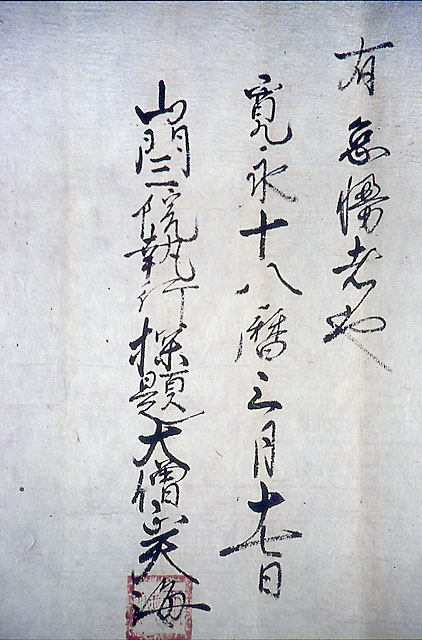 有怠惰者也
寛永十八暦三月十七日
山門三院執行探題大僧正天海